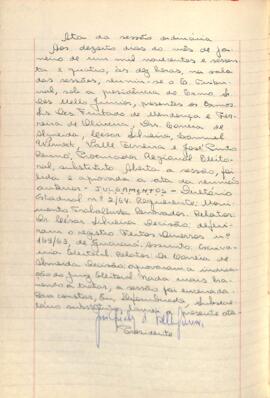 Ata da sessão ordinária
Aos dezoito dias do mês de ja-
neiro de um mil novecentos e sessen-
ta e quatro, às dez horas, na sala
das sessões, reuniu-se o E. Tribu-
nal, sob a presidência do Exmo. S.
Des. Mello Junior, presentes os Exmos.
Srs. Des. Furtado de Mendonça e Fer-
reira de Oliveira, Drs. Correia de
Almeida, Cesar Silveira, Samuel
Valle Ferreira e José Pinto
Procurador Regional Eleito-
ral, substituto. Aberta a sessão, foi
lida e aprovada a ata da reunião
anterior. - JULGAMENTOS - Diretório
Estadual nº 2/64. Requerente: Movi-
mento Trabalhista Renovador. Relator:
Dr. Cesar Silveira. Decisão: deferi-
ram o registro. Feitos Diversos nº
163/63, de Assunto:
Eleitoral. Relator: Dr. Correia de
Almeida. Decisão: aprovaram a indica-
ção do Juiz Eleitoral. Nada mais ha-
vendo a tratar, a sessão foi encerrada.
Para constar, Eu,
substituto, lavrei a presente ata.
Presidente